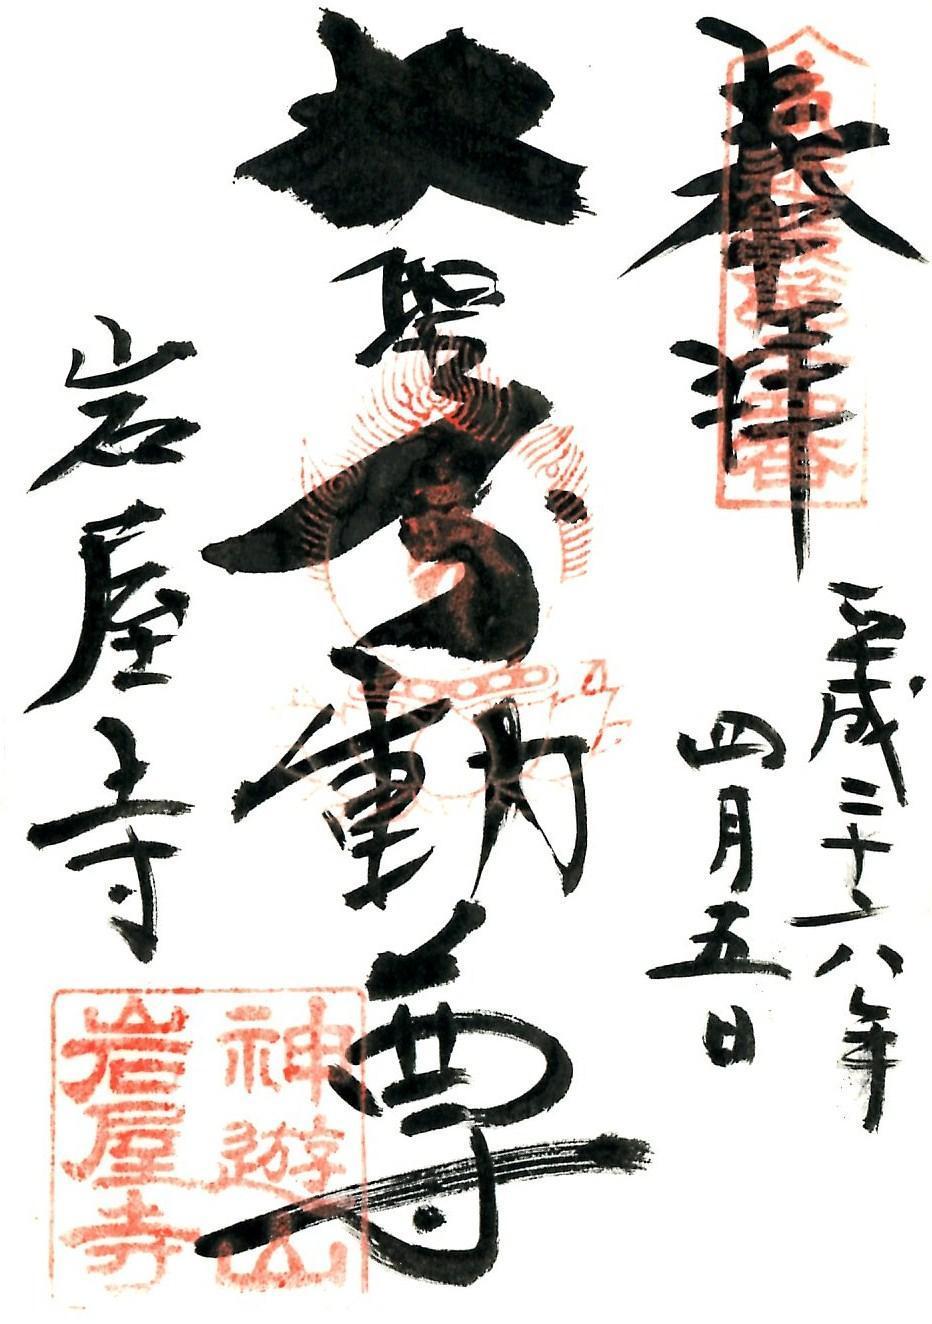 奉拝
平成二十六年
四月五日
大聖不動尊
岩屋寺
神遊山
岩屋寺